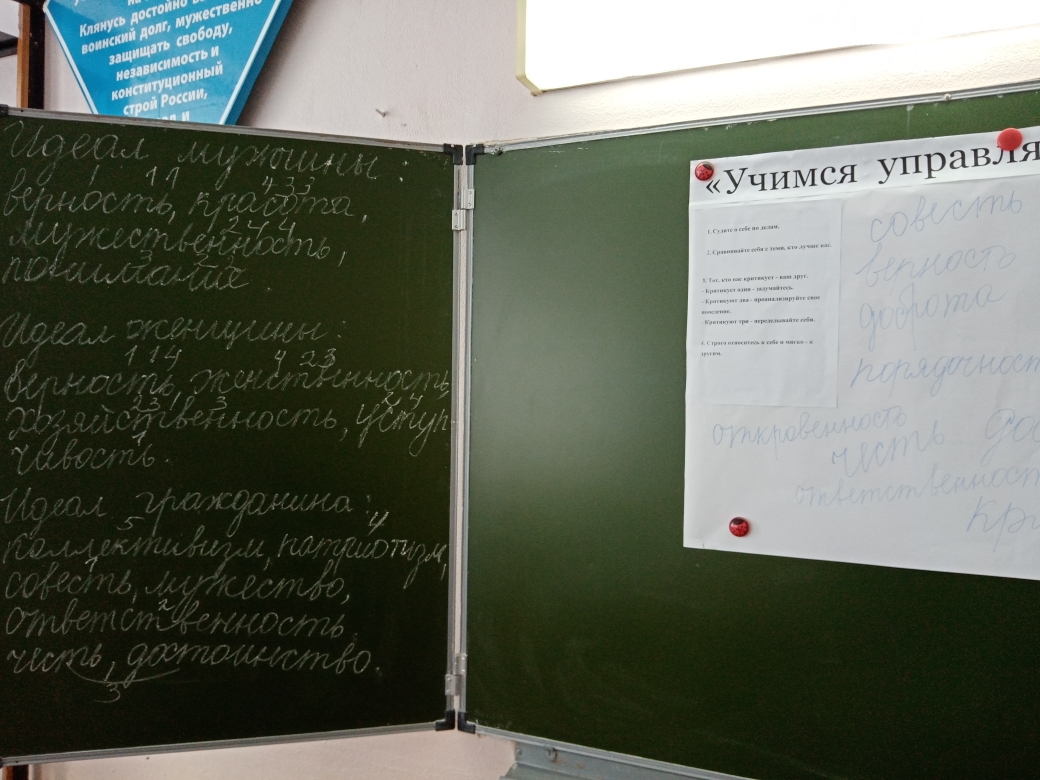 Клянусь достойно
воинский долг, мужественно
защищать свободу,
независимость и
конституционный
строй России,
и
Идеал мужчины:
1 1 4 3 3
верность, красота,
2 4 4
мужественность,
понимание.
Идеал женщины:
1 1 4 4 2 3
верность, женственность,
хозяйственность, уступ-
чивость.
Идеал гражданина:
5 4
коллективизм, патриотизм,
совесть, мужество,
2
ответственность,
честь, достоинство.
3
«Учимся управля
1. Судите о себе по делам.
2. Сравнивайте себя с теми, кто лучше вас.
3. Тот, кто вас критикует - ваш друг.
- Критикует один - задумайтесь.
- Критикуют два - проанализируйте свое
поведение.
- Критикуют три - переделывайте себя.
4. Строго относитесь к себе и мягко - к
другим.
совесть
верность
доброта
порядочност
откровенность
честь до
ответственност
кр